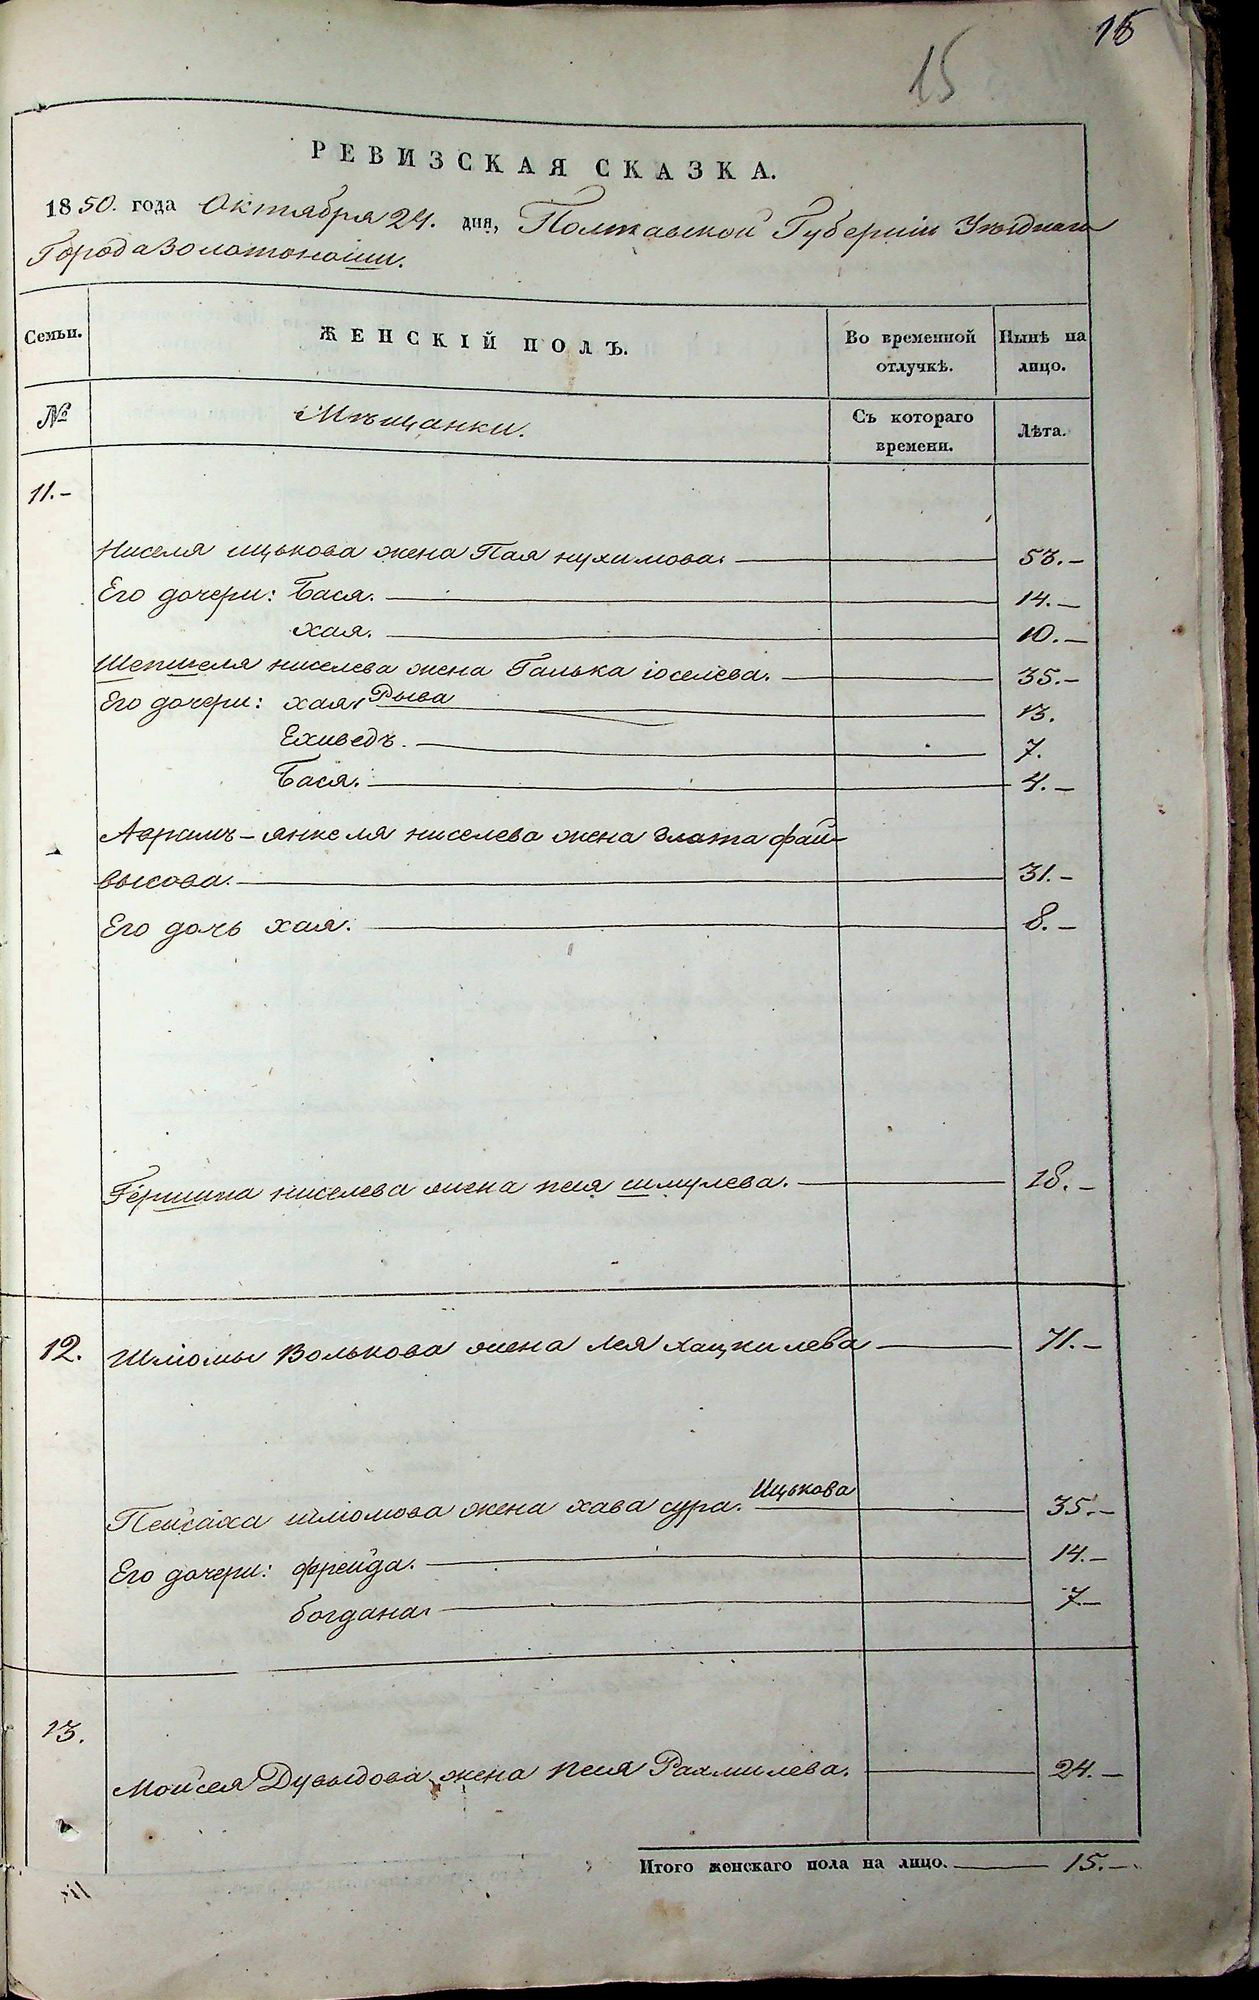 15
15
РЕВИЗСКАЯ СКАЗКА.
1850. года Октября 24. дня, Полтавской Губерніи Уѣзднаго
Города Золотоноши.
Семьи.
ЖЕНСКІЙ ПОЛЪ.
Во временной отлучкѣ.
Нынѣ на лицо.
№
Мѣщанки.
Съ котораго времени.
Лѣта.
11.-
Ниселя ицькова жена Пая нухимова. 53.-
Его дочери: Бася. 14.-
хая. 10.-
Шепшеля ниселева жена Галька іоселева. 35.-
Его дочери: хая Рыва 13.
Ехиведъ. 7.
Бася. 4.-
Аврамъ-янкеля ниселева жена злата фай-
высова. 31.-
Его дочь хая. 8.-
Гершика ниселева жена пея шмулева. 18.-
12. Шліомы Волькова жена лея хацкилева 71.-
Пейсаха шліомова жена хава сура. Ицькова 35.-
Его дочери: фрейда. 14.-
богдана. 7.-
13.
Мойсея Дувыдова жена пея Рахмилева. 24.-
Итого женскаго пола на лицо. 15.-